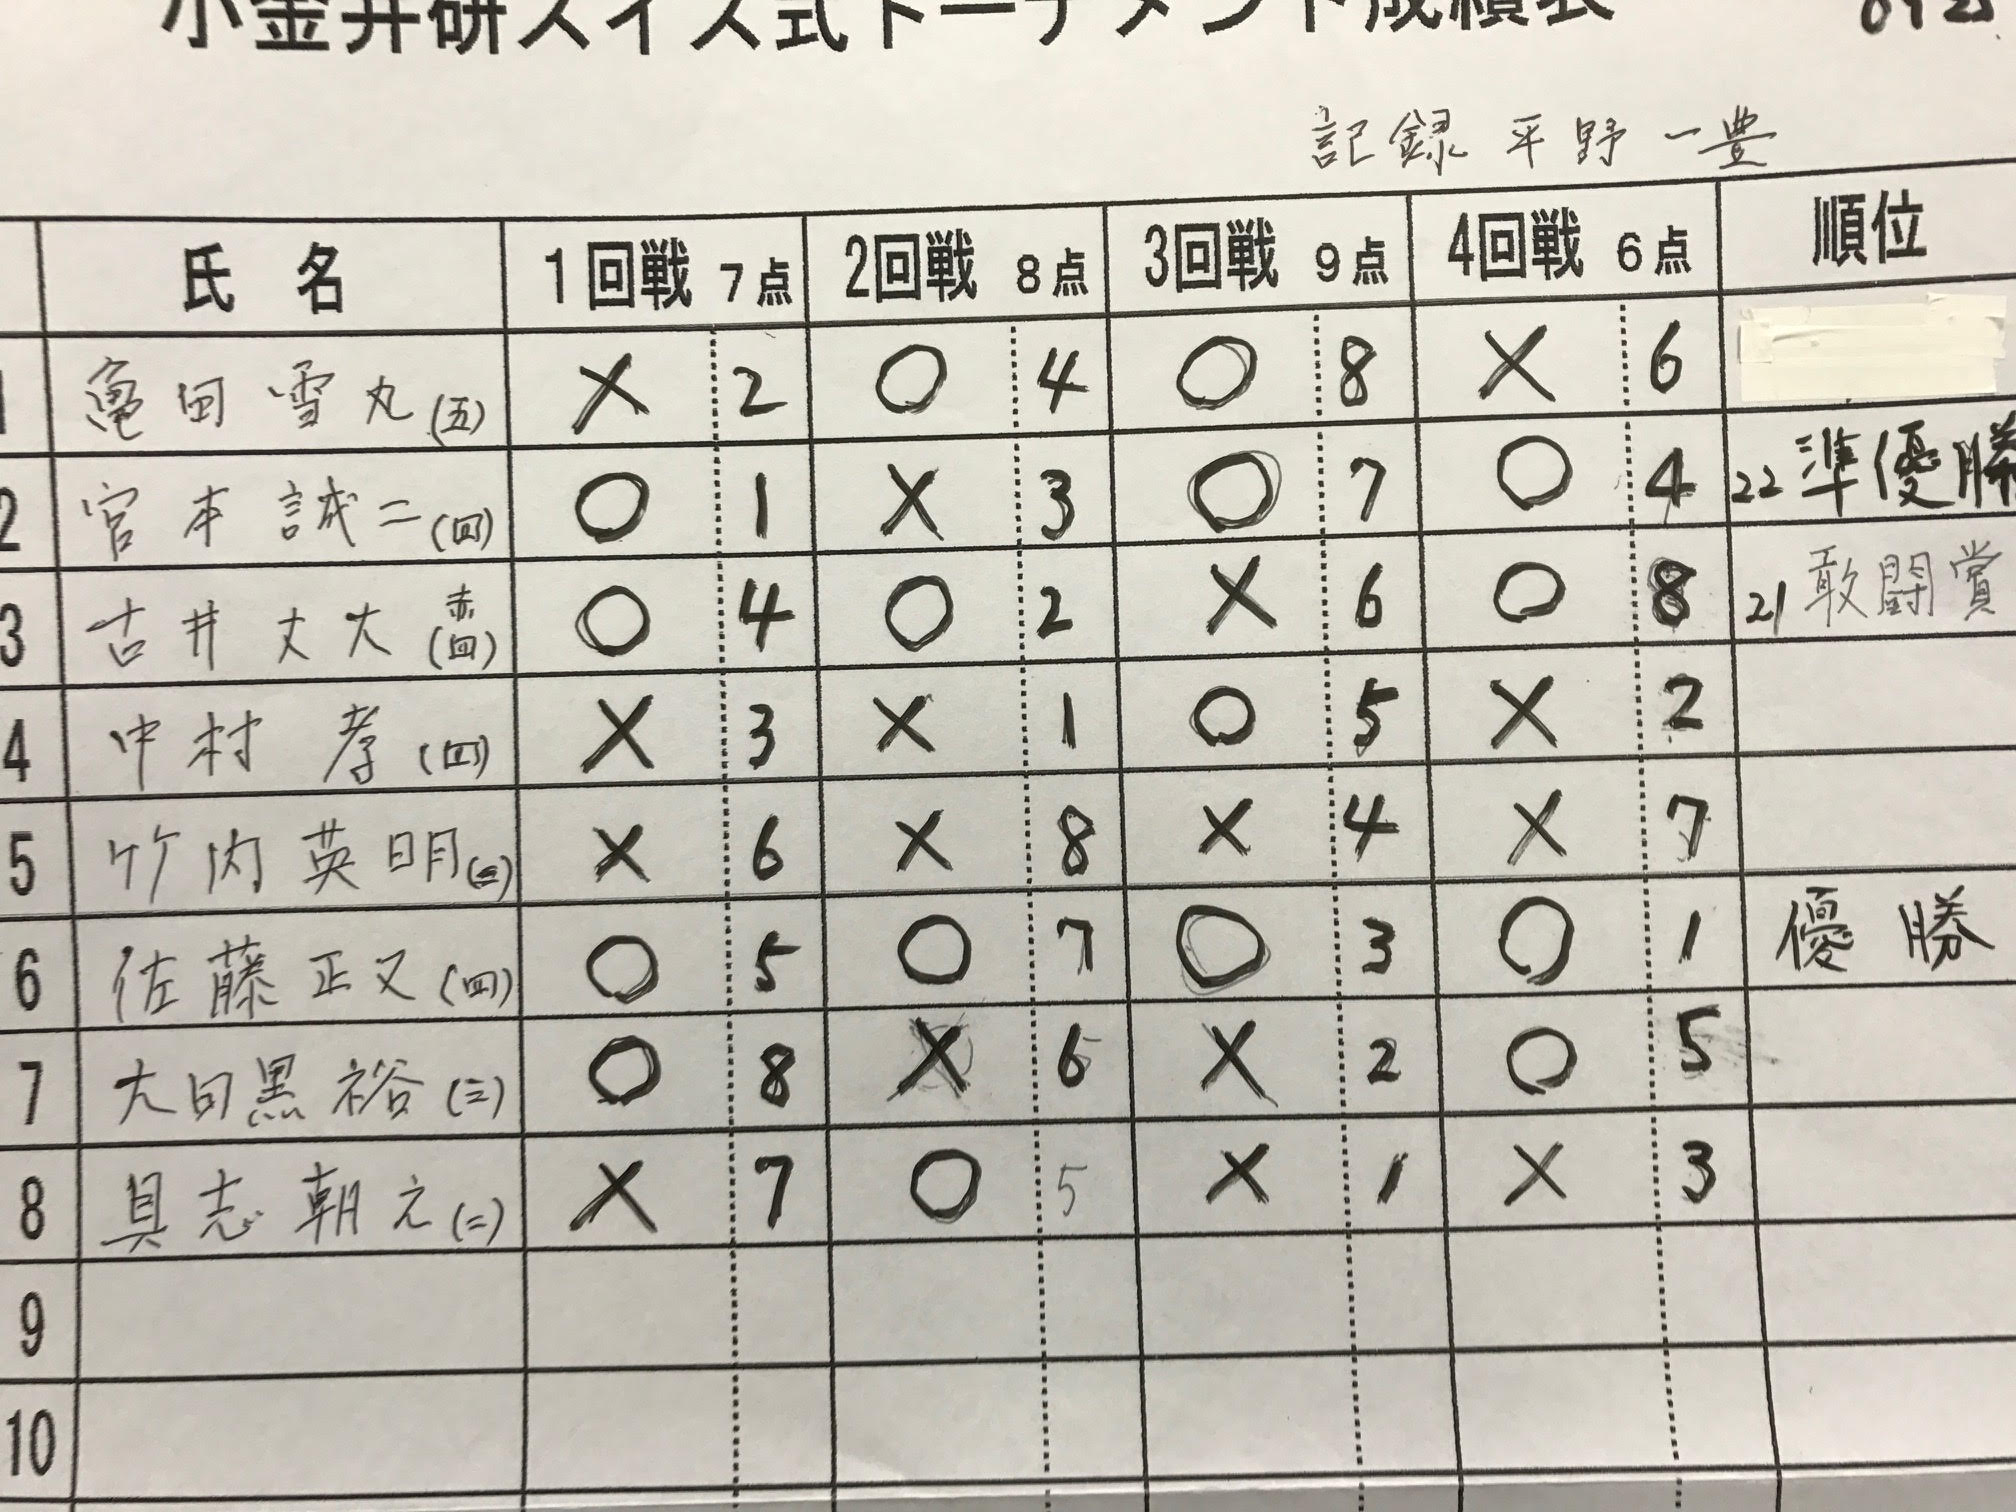 小金井研スイス式トーナメント成績表
記録 平野 一豊
氏 名 1回戦 7点 2回戦 8点 3回戦 9点 4回戦 6点 順位
1 亀田 雪丸(五) × 2 ○ 4 ○ 8 × 6
2 宮本 誠二(四) ○ 1 × 3 ○ 7 ○ 4 22 準優勝
3 古井 丈大 赤(四) ○ 4 ○ 2 × 6 ○ 8 21 敢闘賞
4 中村 孝(四) × 3 × 1 ○ 5 × 2
5 竹内 英明(三) × 6 × 8 × 4 × 7
6 佐藤 正又(四) ○ 5 ○ 7 ○ 3 ○ 1 優勝
7 大目黒 裕(三) ○ 8 × 6 × 2 ○ 5
8 具志 朝元(二) × 7 ○ 5 × 1 × 3
9
10